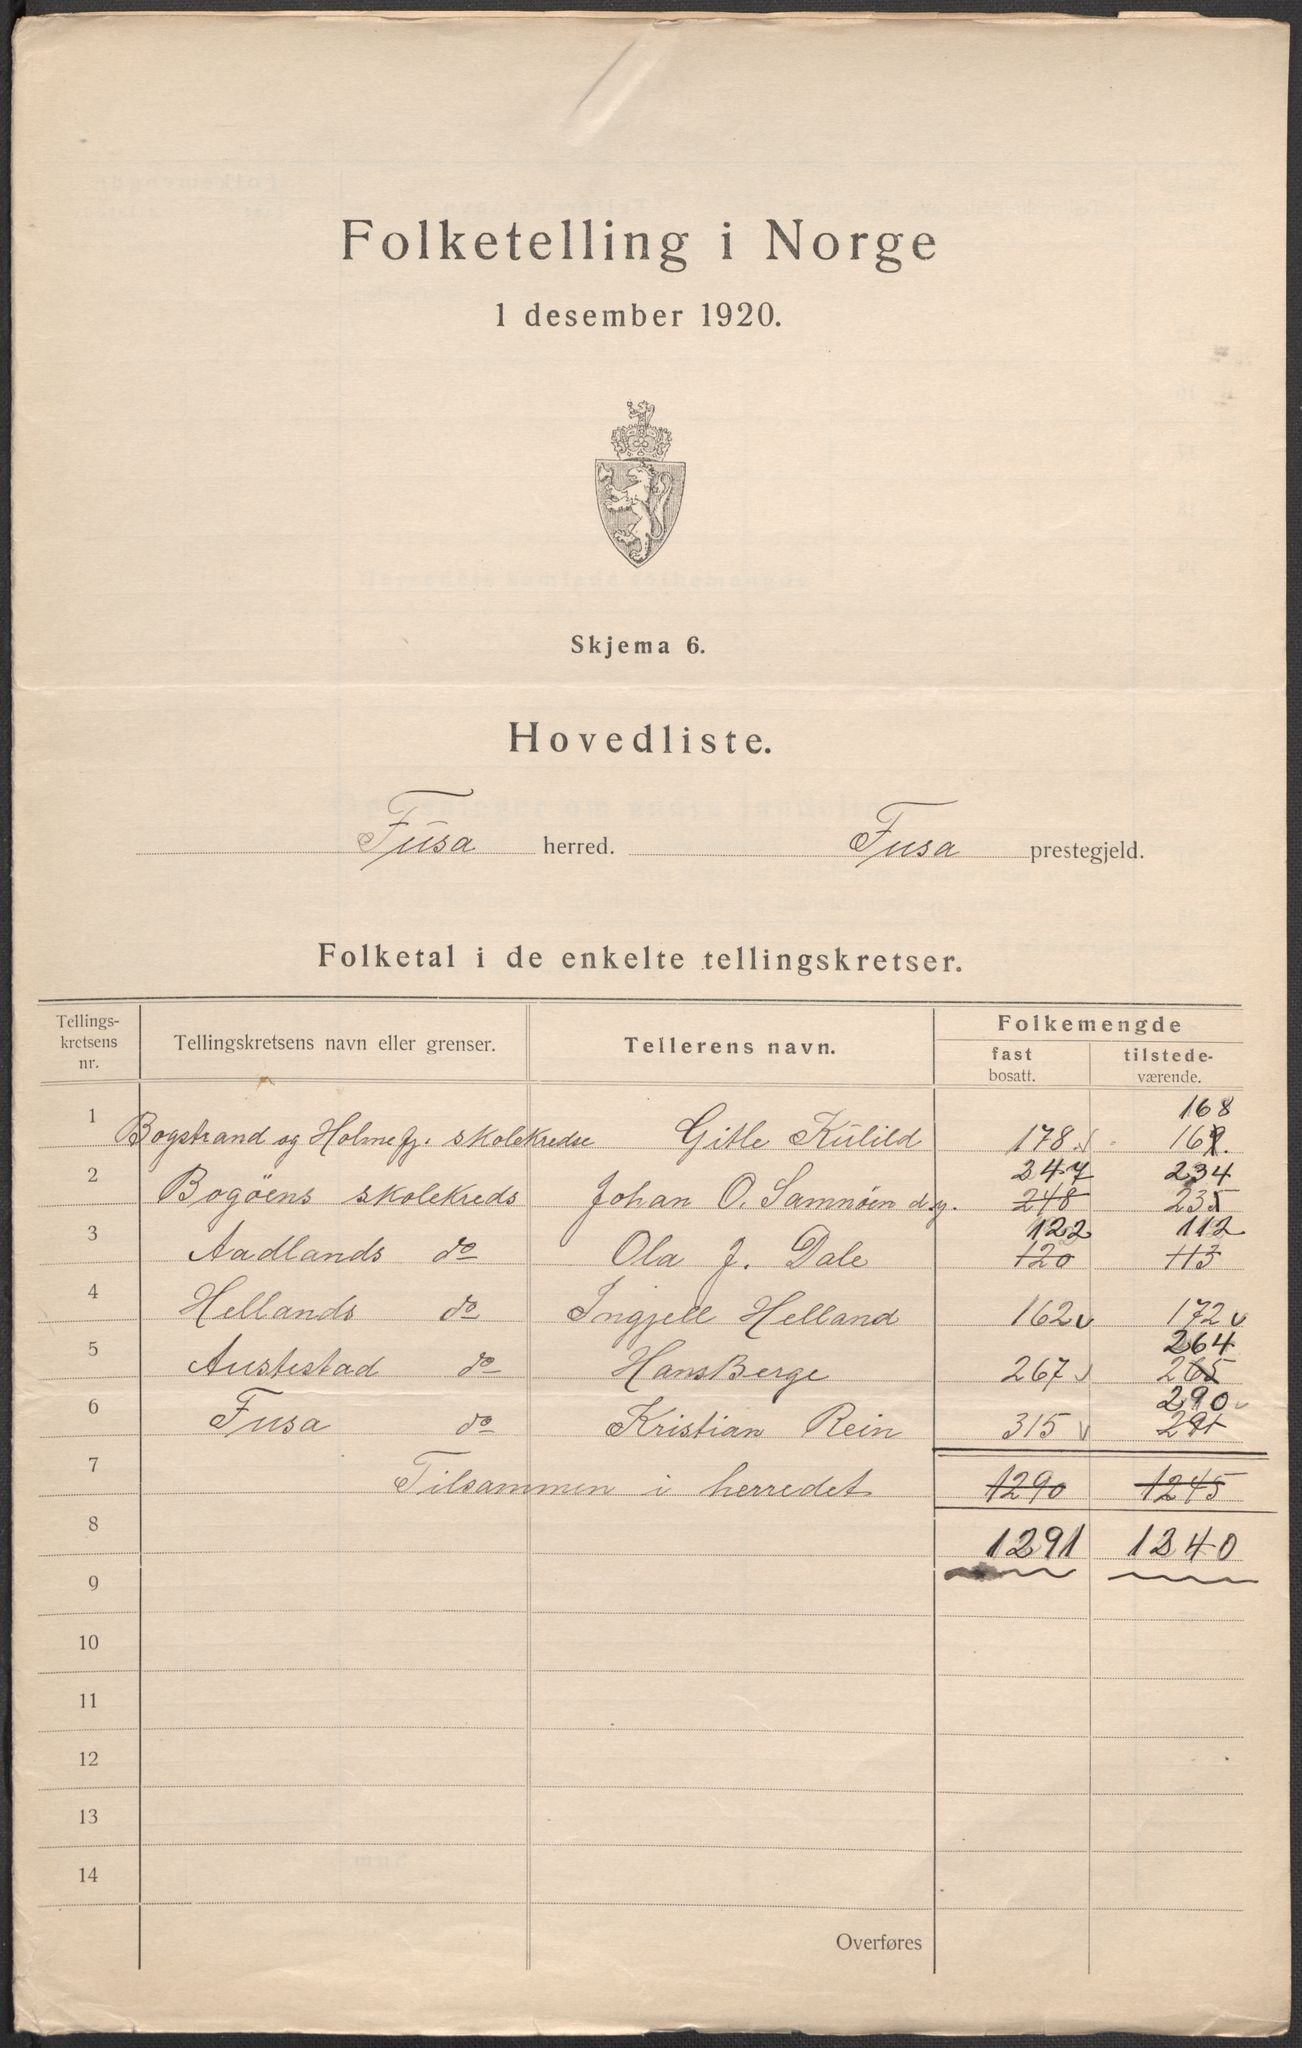 Folketelling i Norge
1 desember 1920.
Skjema 6.
Hovedliste.
Fusa herred. Fusa prestegjeld.
Folketal i de enkelte tellingskretser.
Tellings-kretsens nr. Tellingskretsens navn eller grenser. Tellerens navn. Folkemengde
fast bosatt. tilstede-værende.
168
1 Bogstrand og Holmefj. skolekredse Gitle Kulild 178 169.
247 234
2 Bogöens skolekreds Johan O. Samnøen d.y. 248 235
122 112
3 Aadlands do Ola J. Dale 120 113
4 Hellands do Ingjell Helland 162 v 172 v
264
5 Austestad do Hans Berge 267 v 265
290 v
6 Fusa do Kristian Rein 315 v 291
7 Tilsammen i herredet 1290 1245
8 1291 1240
9
10
11
12
13
14
Overføres